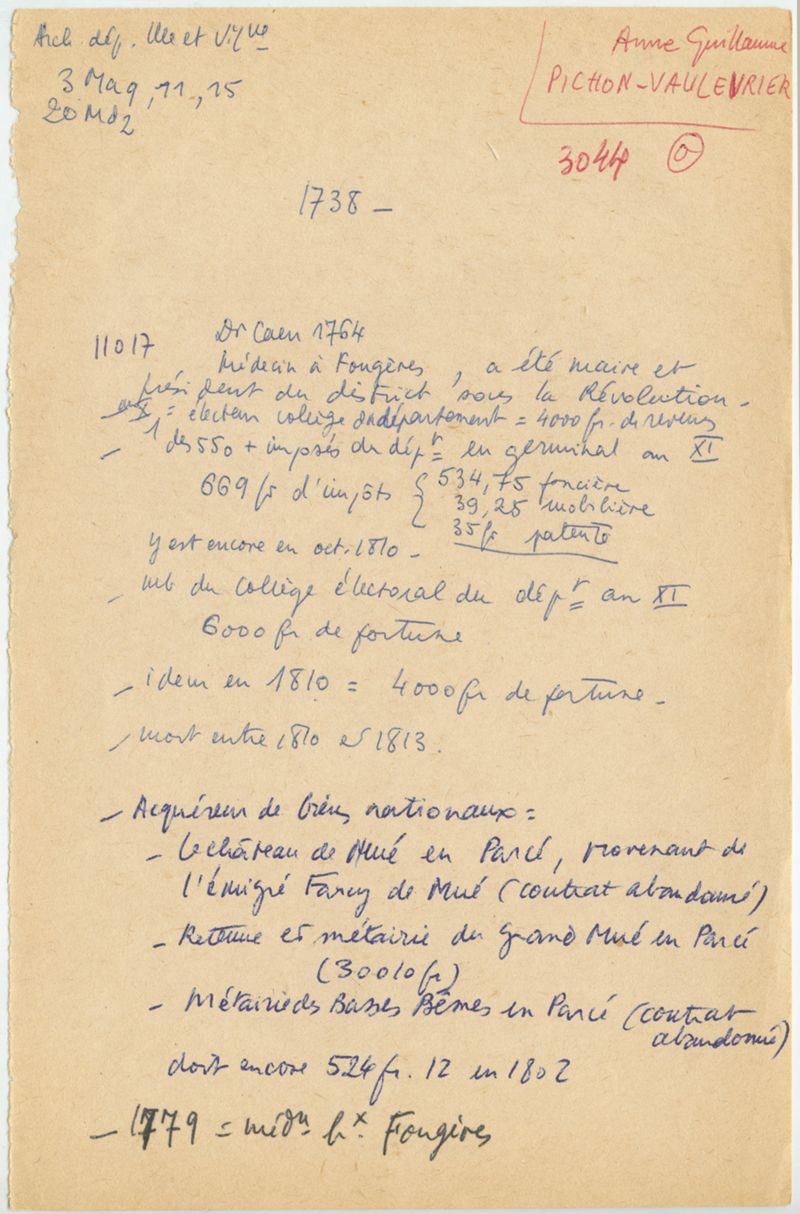 Arch. dép. Ille et Vil^ne
3 Ma 9, 11, 15
20 Md 2
Anne Guillaume
PICHON-VAULEVRIER
3044 O
1738 -
11017 Dr Caen 1764
Médecin à Fougères, a été maire et
président du district sous la Révolution -
= électeur collège du département = 4000 fr. de revenus
- 1 des 550 + imposés du dép^r en germinal an XI
669 fr d'impôts { 534,75 foncière
39,25 mobilière
35 fr patente
y est encore en oct. 1810 -
- mb du collège électoral du dép^r an XI
6000 fr de fortune
- idem en 1810 = 4000 fr de fortune -
- mort entre 1810 et 1813.
- Acquéreur de biens nationaux =
- le château de Mué en Parcé, provenant de
l'émigré Farcy de Mué (contrat abandonné)
- Retenue et métairie du Grand Mué en Parcé
(30010 fr)
- Métairie des Basses Bêmes en Parcé (contrat
abandonné)
doit encore 524 fr. 12 en 1802
- 1779 = méd^n h^x. Fougères